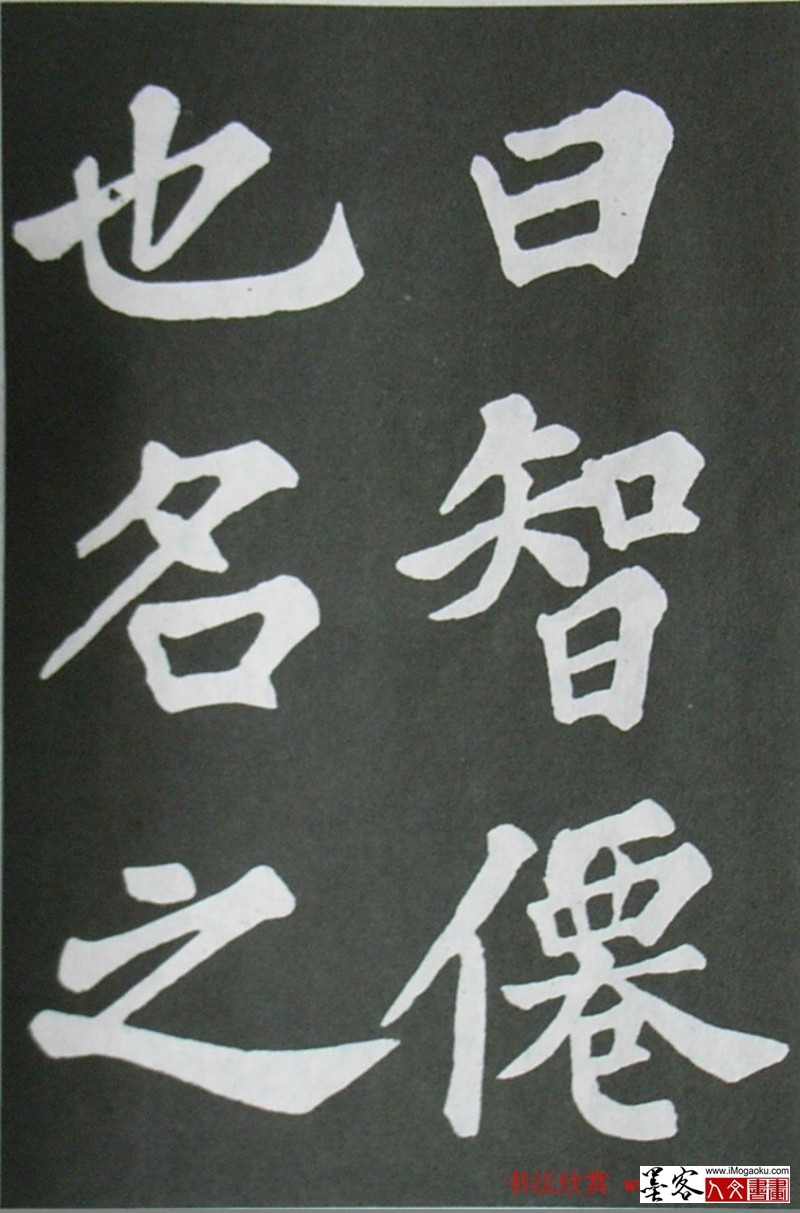 曰智僊
也名之
书法欣赏
墨客
www.iMogaoku.com
人文書畫